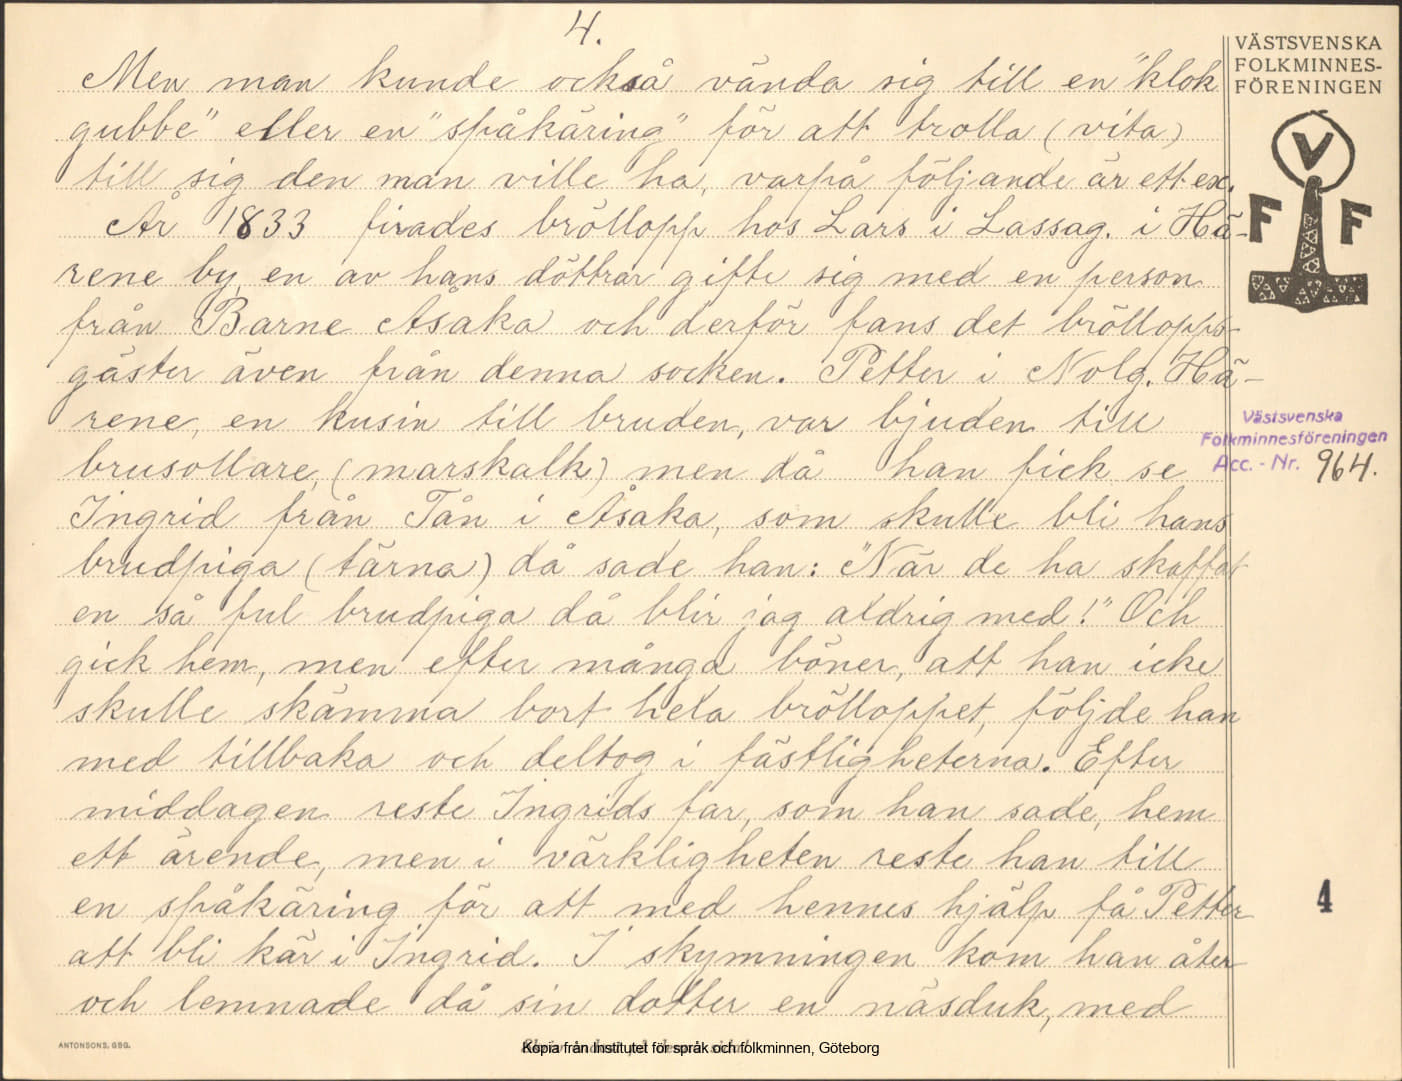 4.
Men man kunde också vända sig till en "klok
gubbe" eller en "spåkäring" för att trolla (vita)
till sig den man ville ha, varpå följande är ett ex.
År 1833 firades bröllopp hos Lars i Lassag. i Hä-
rene by, en av hans döttrar gifte sig med en person
från Barne Åsaka och derför fans det bröllopps-
gäster även från denna socken. Petter i Nolg. Hä-
rene, en kusin till bruden, var bjuden till
brusollare, (marskalk) men då han fick se
Ingrid från Tån i Åsaka, som skulle bli hans
brudpiga (tärna) då sade han: "När de ha skaffat
en så ful brudpiga då blir jag aldrig med!" Och
gick hem, men efter många böner, att han icke
skulle skämma bort hela brölloppet, följde han
med tillbaka och deltog i fästligheterna. Efter
middagen reste Ingrids far, som han sade, hem
ett ärende, men i värkligheten reste han till
en spåkäring för att med hennes hjälp få Petter
att bli kär i Ingrid. I skymningen kom han åter
och lemnade då sin dotter en näsduk, med
VÄSTSVENSKA
FOLKMINNES-
FÖRENINGEN
V
F F
Västsvenska
Folkminnesföreningen
Acc. - Nr. 964.
4
ANTONSONS, GBG.
Kopia från Institutet för språk och folkminnen, Göteborg